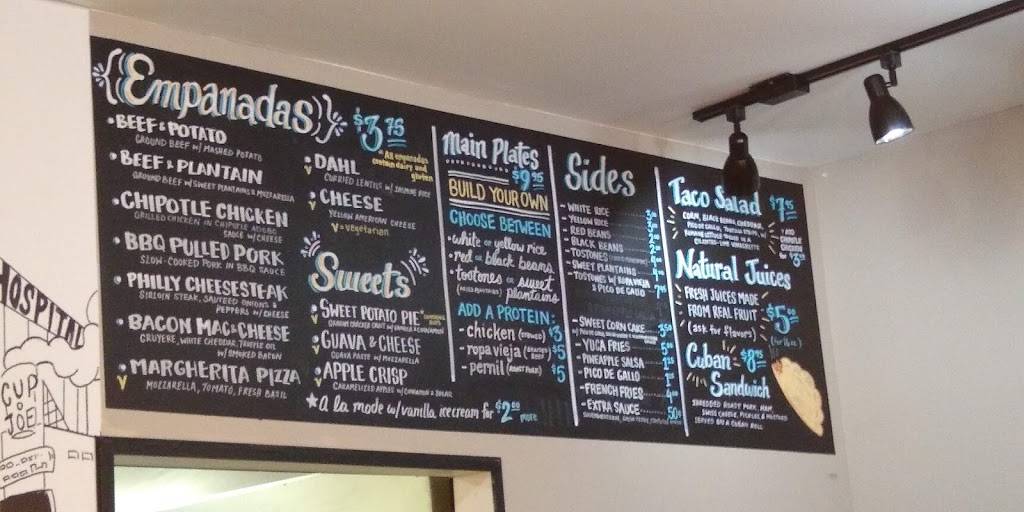 HOSPITAL
CUP
O
JOE
Empanadas
BEEF & POTATO
GROUND BEEF W/ MASHED POTATO
BEEF & PLANTAIN
GROUND BEEF W/ SWEET PLANTAINS & MOZZARELLA
CHIPOTLE CHICKEN
GRILLED CHICKEN IN CHIPOTLE ADOBO
SAUCE W/ CHEESE
BBQ PULLED PORK
SLOW-COOKED PORK IN BBQ SAUCE
PHILLY CHEESESTEAK
SIRLOIN STEAK, SAUTEED ONIONS &
PEPPERS W/ CHEESE
BACON MAC & CHEESE
GRUYERE, WHITE CHEDDAR, TRUFFLE OIL
W/ SMOKED BACON
MARGHERITA PIZZA
V MOZZARELLA, TOMATO, FRESH BASIL
$3.75
* All empanadas
contain dairy and
gluten
DAHL
V CURRIED LENTILS W/ JASMINE RICE
CHEESE
V YELLOW AMERICAN CHEESE
V = vegetarian
Sweets
SWEET POTATO PIE
GRAHAM CRACKER CRUST W/ VANILLA & CINNAMON
GUAVA & CHEESE
GUAVA PASTE W/ MOZZARELLA
APPLE CRISP
CARAMELIZED APPLES W/ CINNAMON & SUGAR
★ A la mode w/ vanilla icecream for $2.00 more
Main Plates
$9.95
BUILD YOUR OWN
CHOOSE BETWEEN
• white or yellow rice
• red or black beans
• tostones or sweet
(FRIED PLANTAINS) plantains
ADD A PROTEIN:
- chicken (STEWED) $3
- ropa vieja (BRAISED BEEF) $5
- pernil (ROAST PORK) $5
Sides
- WHITE RICE
- YELLOW RICE
- RED BEANS
- BLACK BEANS
- TOSTONES
- SWEET PLANTAINS
- TOSTONES W/ ROPA VIEJA
& PICO DE GALLO
- SWEET CORN CAKE 3.50
- YUCA FRIES
- PINEAPPLE SALSA
- PICO DE GALLO
- FRENCH FRIES
- EXTRA SAUCE 50¢
Taco Salad $7.95
CORN, BLACK BEANS, CHEDDAR,
PICO DE GALLO, TORTILLA STRIPS,
ROMAINE LETTUCE TOSSED IN A
CILANTRO-LIME VINAIGRETTE
ADD
CHIPOTLE
CHICKEN
for $3
Natural Juices
FRESH JUICES MADE
FROM REAL FRUIT
(ask for flavors)
$5.00
(for 16 oz.)
Cuban $8.75
Sandwich
SHREDDED ROAST PORK, HAM,
SWISS CHEESE, PICKLES & MUSTARD
SERVED ON A CUBAN ROLL